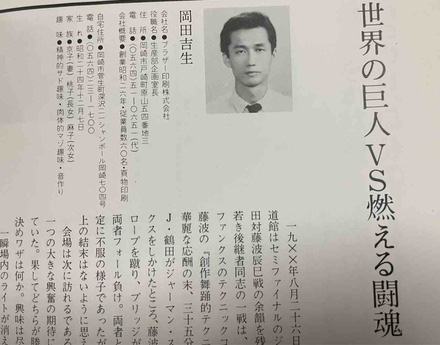 世界の巨人VS燃える闘魂
岡田吉生
会社名●ブラザー印刷株式会社
役職名●生産部企画室長
住所●岡崎市戸崎町原山五四番地三
電話●(〇五六四)五一―〇六五一(代)
会社概要●創業昭和二六年・従業員数六〇名・頁物印刷
自宅住所●岡崎市菅生町深沢二一シャンボール岡崎七〇四号
電話●(〇五六四)二三―一七〇〇
生れ●昭和二十四年十二月七日
家族●京子(妻)桃子(長女)麻子(次女)
趣味●精神的サド趣味・肉体的マゾ趣味・音作り
一九××年八月二十六日
道館はセミファイナルのジ
田対藤波辰巳戦の余韻を残
若き後継者同志の一戦は、
ファンクスのテクニックコ
藤波の『創作舞踊的テクニ
華麗な応酬の末、三十五分
J・鶴田がジャーマン・ス
クスをしかけたところ、藤波
ロープを蹴り、ブリッジが
両者フォール負け。両者と
定に不服の様子であったが
上の結末はないように思え
会場は次に訪れるであろ
一つの大きな興奮の期待に
ていた。果してどちらが勝
決めワザは何か。興味は尽
一瞬場内のライトが消え